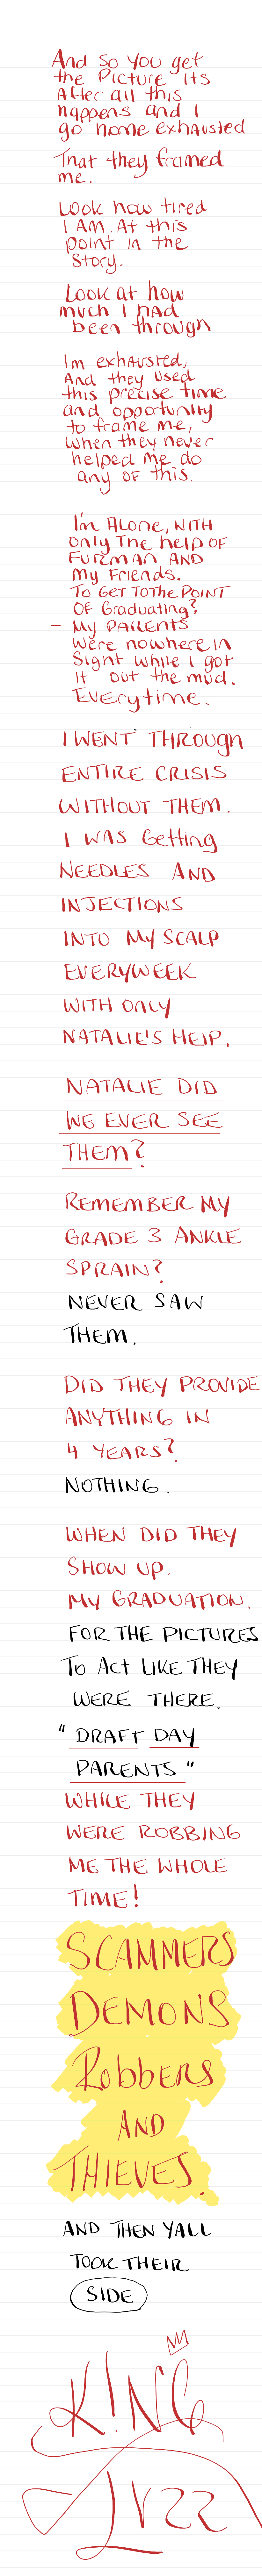 And so you get
the Picture its
After all this
happens and I
go home exhausted
That they framed
me.
Look how tired
I AM. At this
point in the
Story.
Look at how
much I had
been through
Im exhausted,
And they used
this precise time
and opportunity
to frame me,
when they never
helped me do
any OF this.
I'm Alone, WITH
only The help OF
FURMAN AND
My Friends.
To GET TO The POINT
OF Graduating?
- My PARENTS
were nowhere in
Sight while I got
it out the mud.
Everytime.
I WENT THROUGH
ENTIRE CRISIS
WITHOUT THEM.
I WAS Getting
NEEDLES AND
INJECTIONS
INTO MY SCALP
EVERYWEEK
WITH ONLY
NATALIE'S HELP.
NATALIE DID
WE EVER SEE
THEM?
REMEMBER MY
GRADE 3 ANKLE
SPRAIN?
NEVER SAW
THEM.
DID THEY PROVIDE
ANYTHING IN
4 YEARS?
NOTHING.
WHEN DID THEY
SHOW UP.
MY GRADUATION.
FOR THE PICTURES
To ACT LIKE THEY
WERE THERE.
"DRAFT DAY
PARENTS"
WHILE THEY
WERE ROBBING
ME THE WHOLE
TIME!
SCAMMERS
DEMONS
Robbers
AND
THIEVES.
AND THEN YALL
TOOK THEIR
SIDE
K!NG